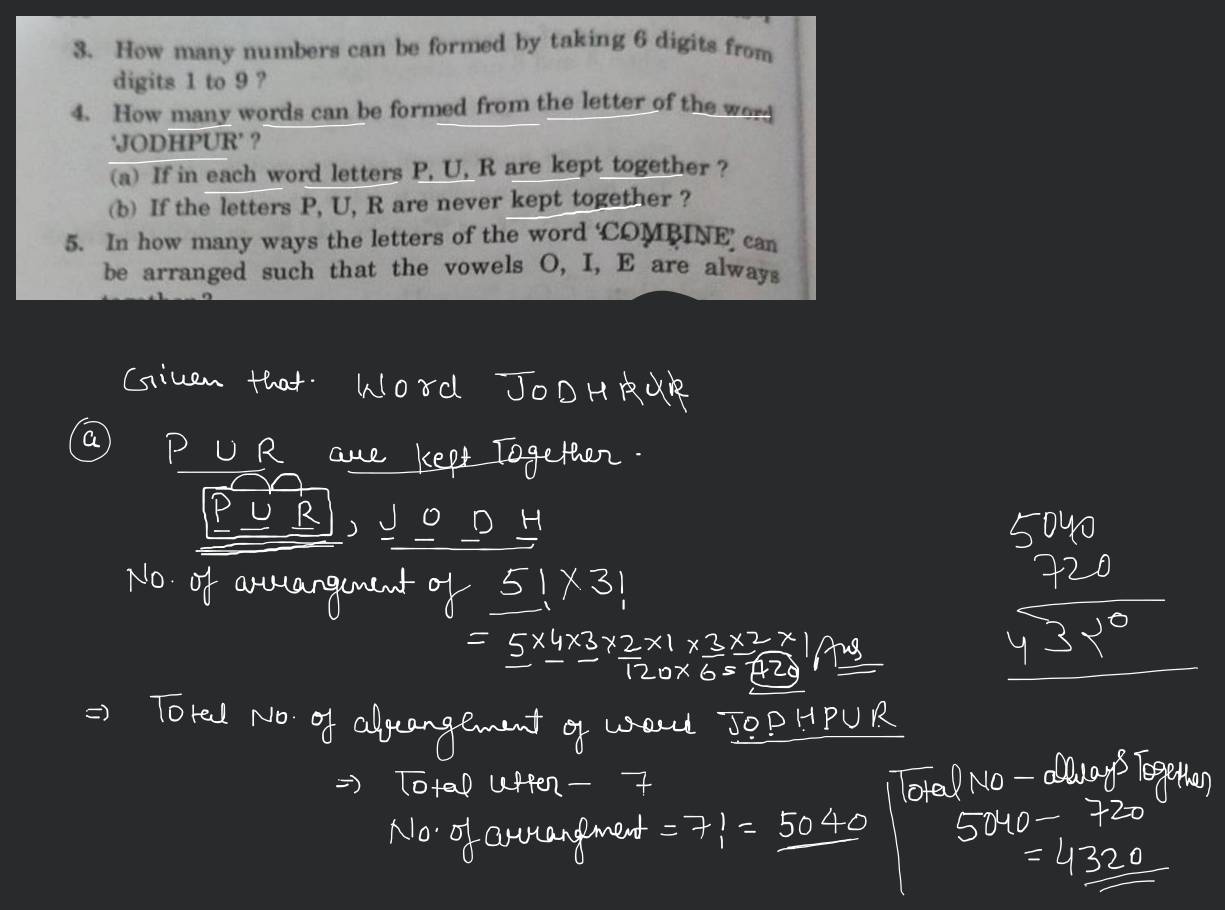 3. How many numbers can be formed by taking 6 digits from
digits 1 to 9 ?
4. How many words can be formed from the letter of the word
'JODHPUR' ?
(a) If in each word letters P, U, R are kept together ?
(b) If the letters P, U, R are never kept together ?
5. In how many ways the letters of the word 'COMBINE' can
be arranged such that the vowels O, I, E are always
Given that. Word JODHPUR
(a) P U R are kept Together.
P U R , J O D H
No. of arrangement of 5! × 3!
= 5×4×3×2×1 ×3×2×1 Ans
120×6 = 720
5040
720
4320
⇒ Total No. of arrangement of word JODHPUR
⇒ Total letter – 7
No. of arrangment = 7! = 5040
Total No – always Together
5040 – 720
= 4320